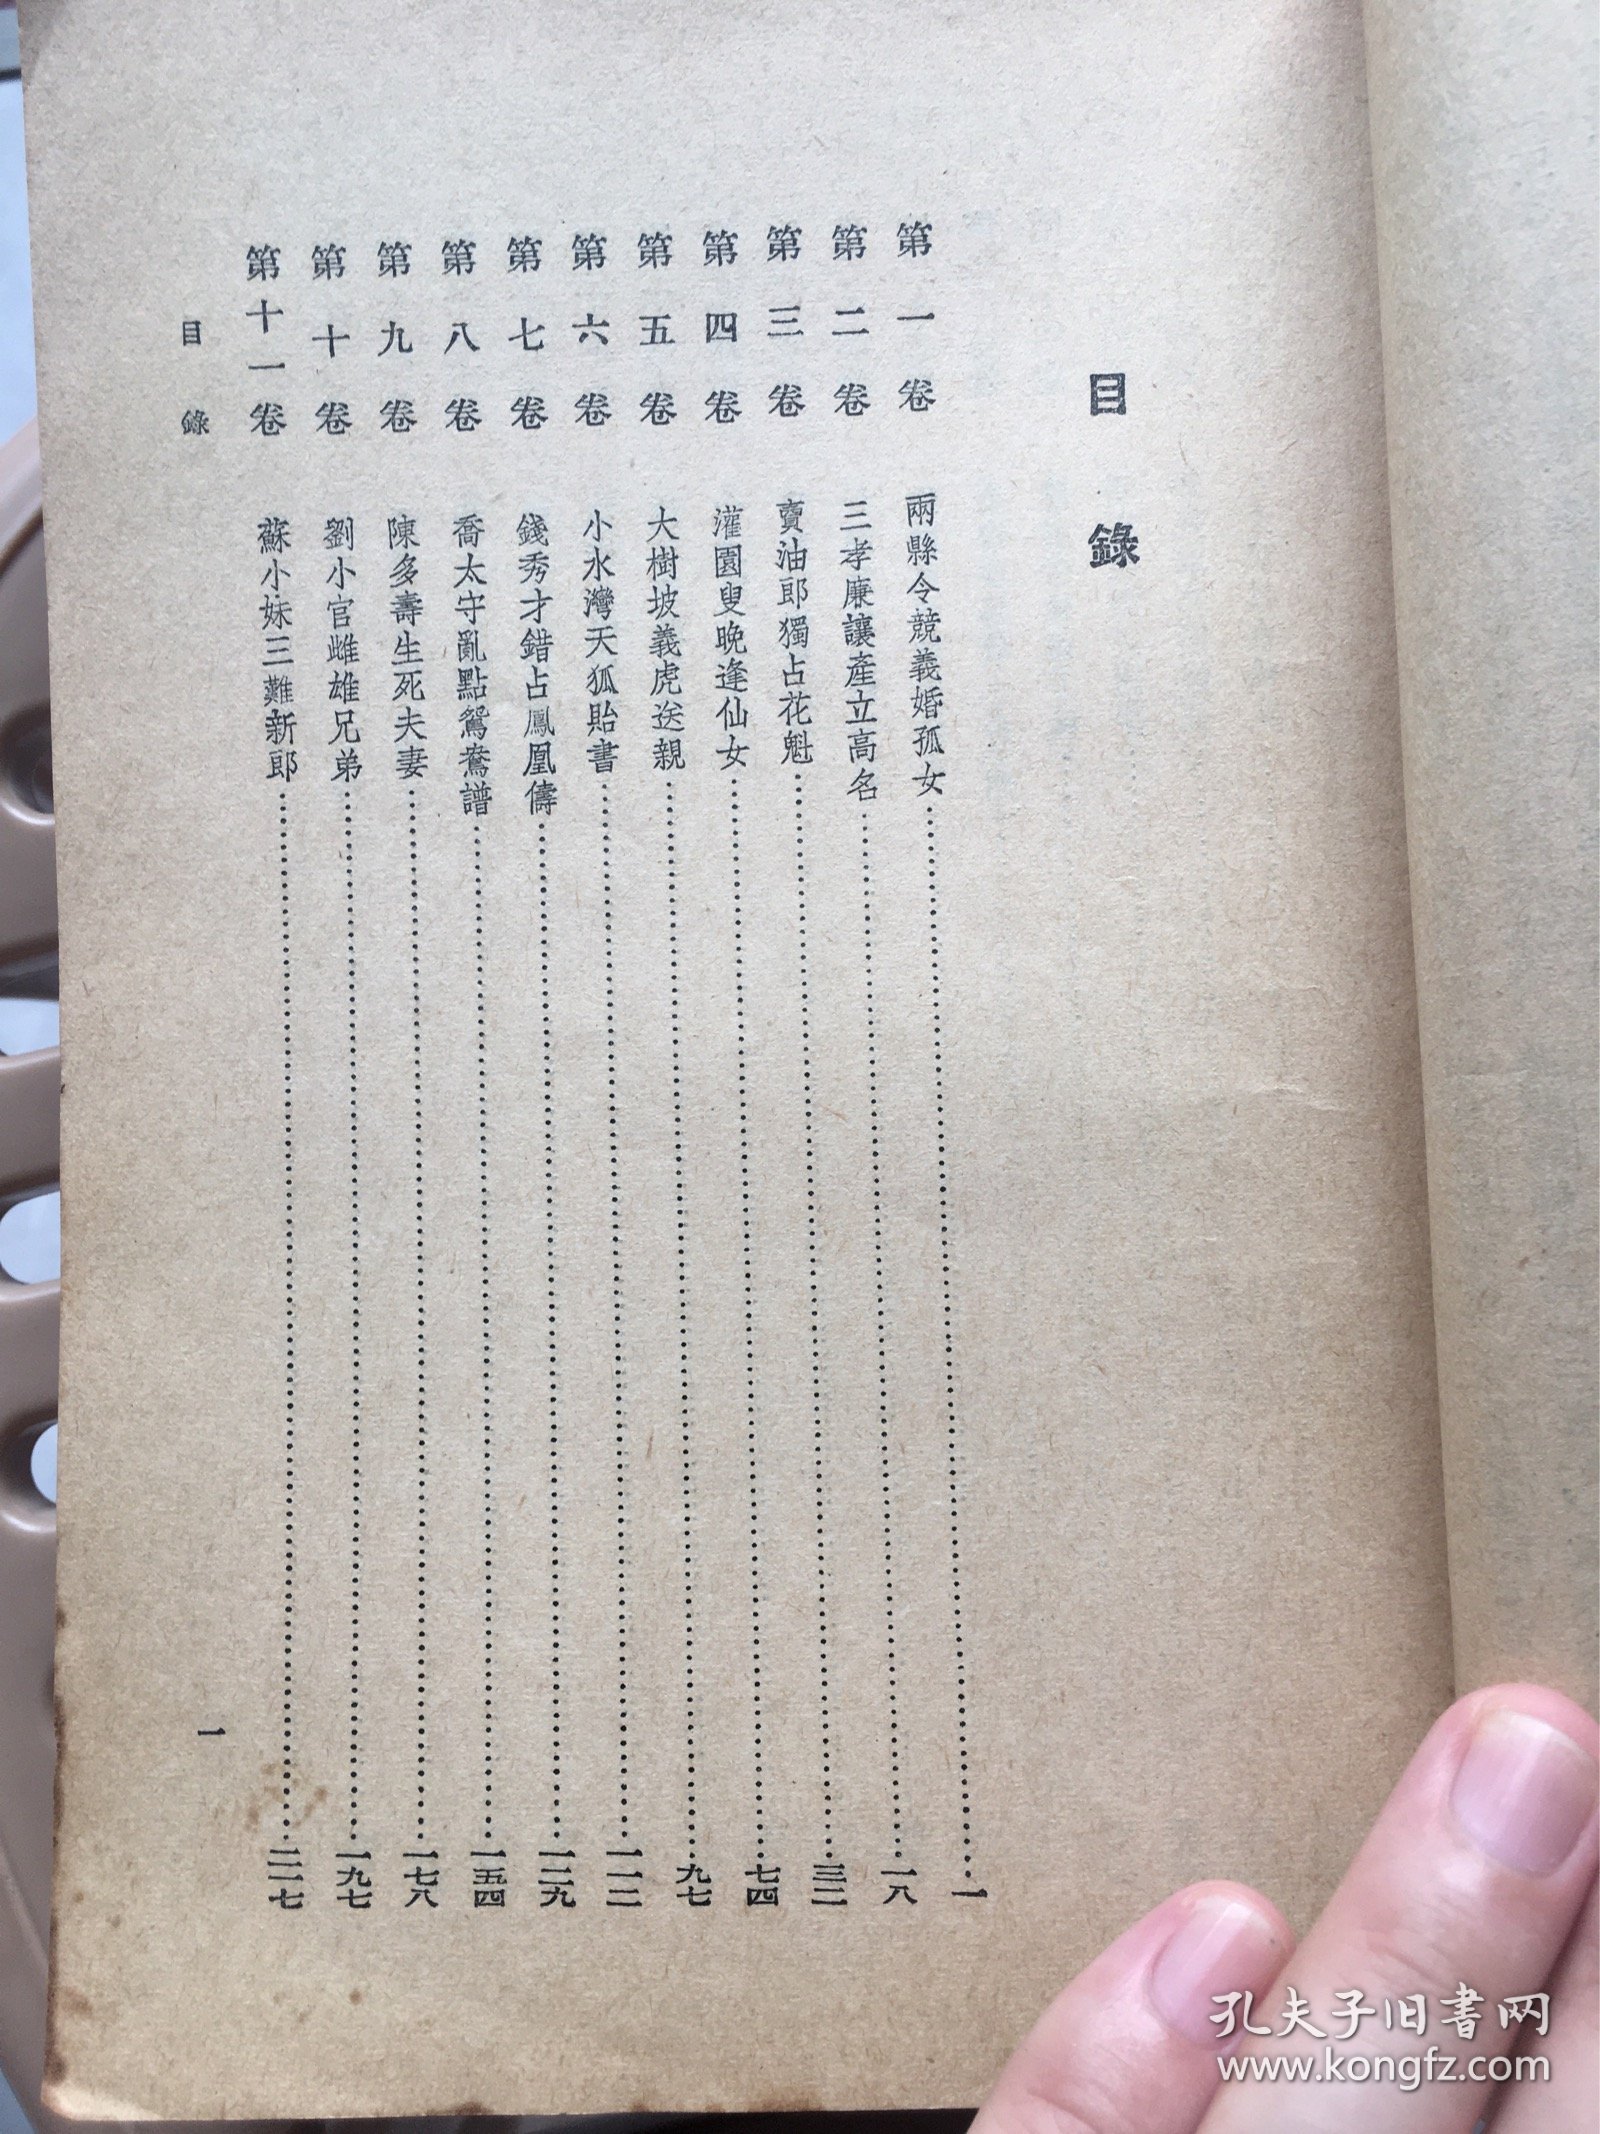 目錄
第一卷 兩縣令競義婚孤女……一
第二卷 三孝廉讓產立高名……一八
第三卷 賣油郎獨占花魁……三二
第四卷 灌園叟晚逢仙女……七四
第五卷 大樹坡義虎送親……九七
第六卷 小水灣天狐貽書……一一二
第七卷 錢秀才錯占鳳凰儔……一二九
第八卷 喬太守亂點鴛鴦譜……一五四
第九卷 陳多壽生死夫妻……一七八
第十卷 劉小官雌雄兄弟……一九七
第十一卷 蘇小妹三難新郎……二一七
目錄
一
孔夫子旧書网
www.kongfz.com